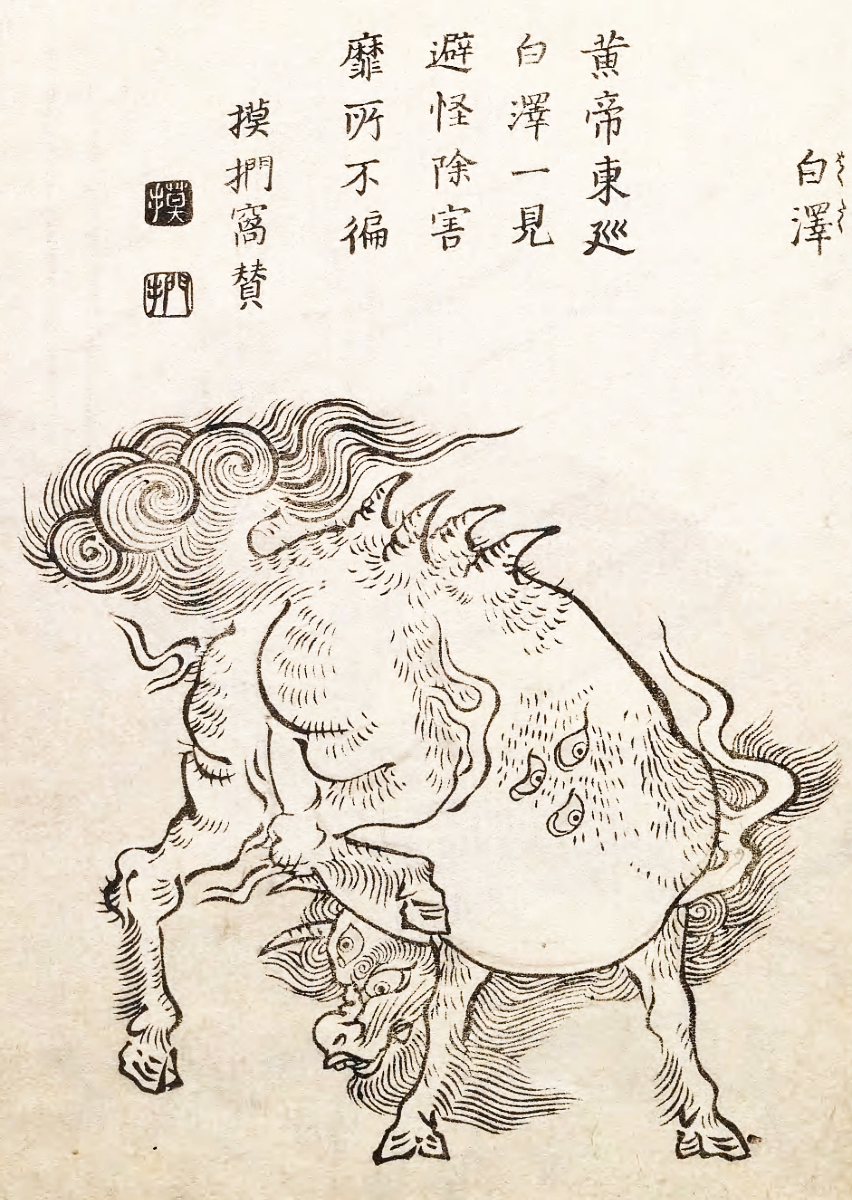 白澤
はくたく
黄帝東巡
白澤一見
避怪除害
靡所不徧
摸捫窩賛
摸
捫